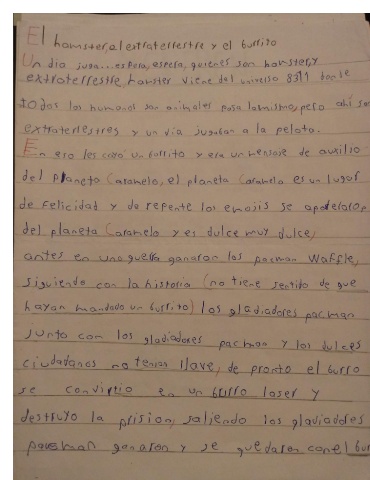 El hamster,el extraterrestre y el burrito
Un dia juga...espera,espera, quienes son hamster,y
extraterrestre, hamster viene del universo 8311 donde
todos los humanos son animales pasa lo mismo,pero ahi son
extraterrestres y un dia jugaban a la pelota.
En eso les cayó un burrito y era un mensaje de auxilio
del planeto Caramelo, el planeta Caramelo es un lugar
de felicidad y de repente los emojis se apoderaron
del planeta Caramelo y es dulce muy dulce,
antes en una guerra ganaron los pacman Waffle,
siguiendo con la historia (no tiene sentido de que
hayan mandado un burrito) los gladiadores pacman
junto con los gladiadores pacman y los dulces
ciudadanos no tenian llave, de pronto el burro
se convirtio en un burro laser y
destruyo la prision, saliendo los glaviadores
pacman ganaron y se quedaron con el bur